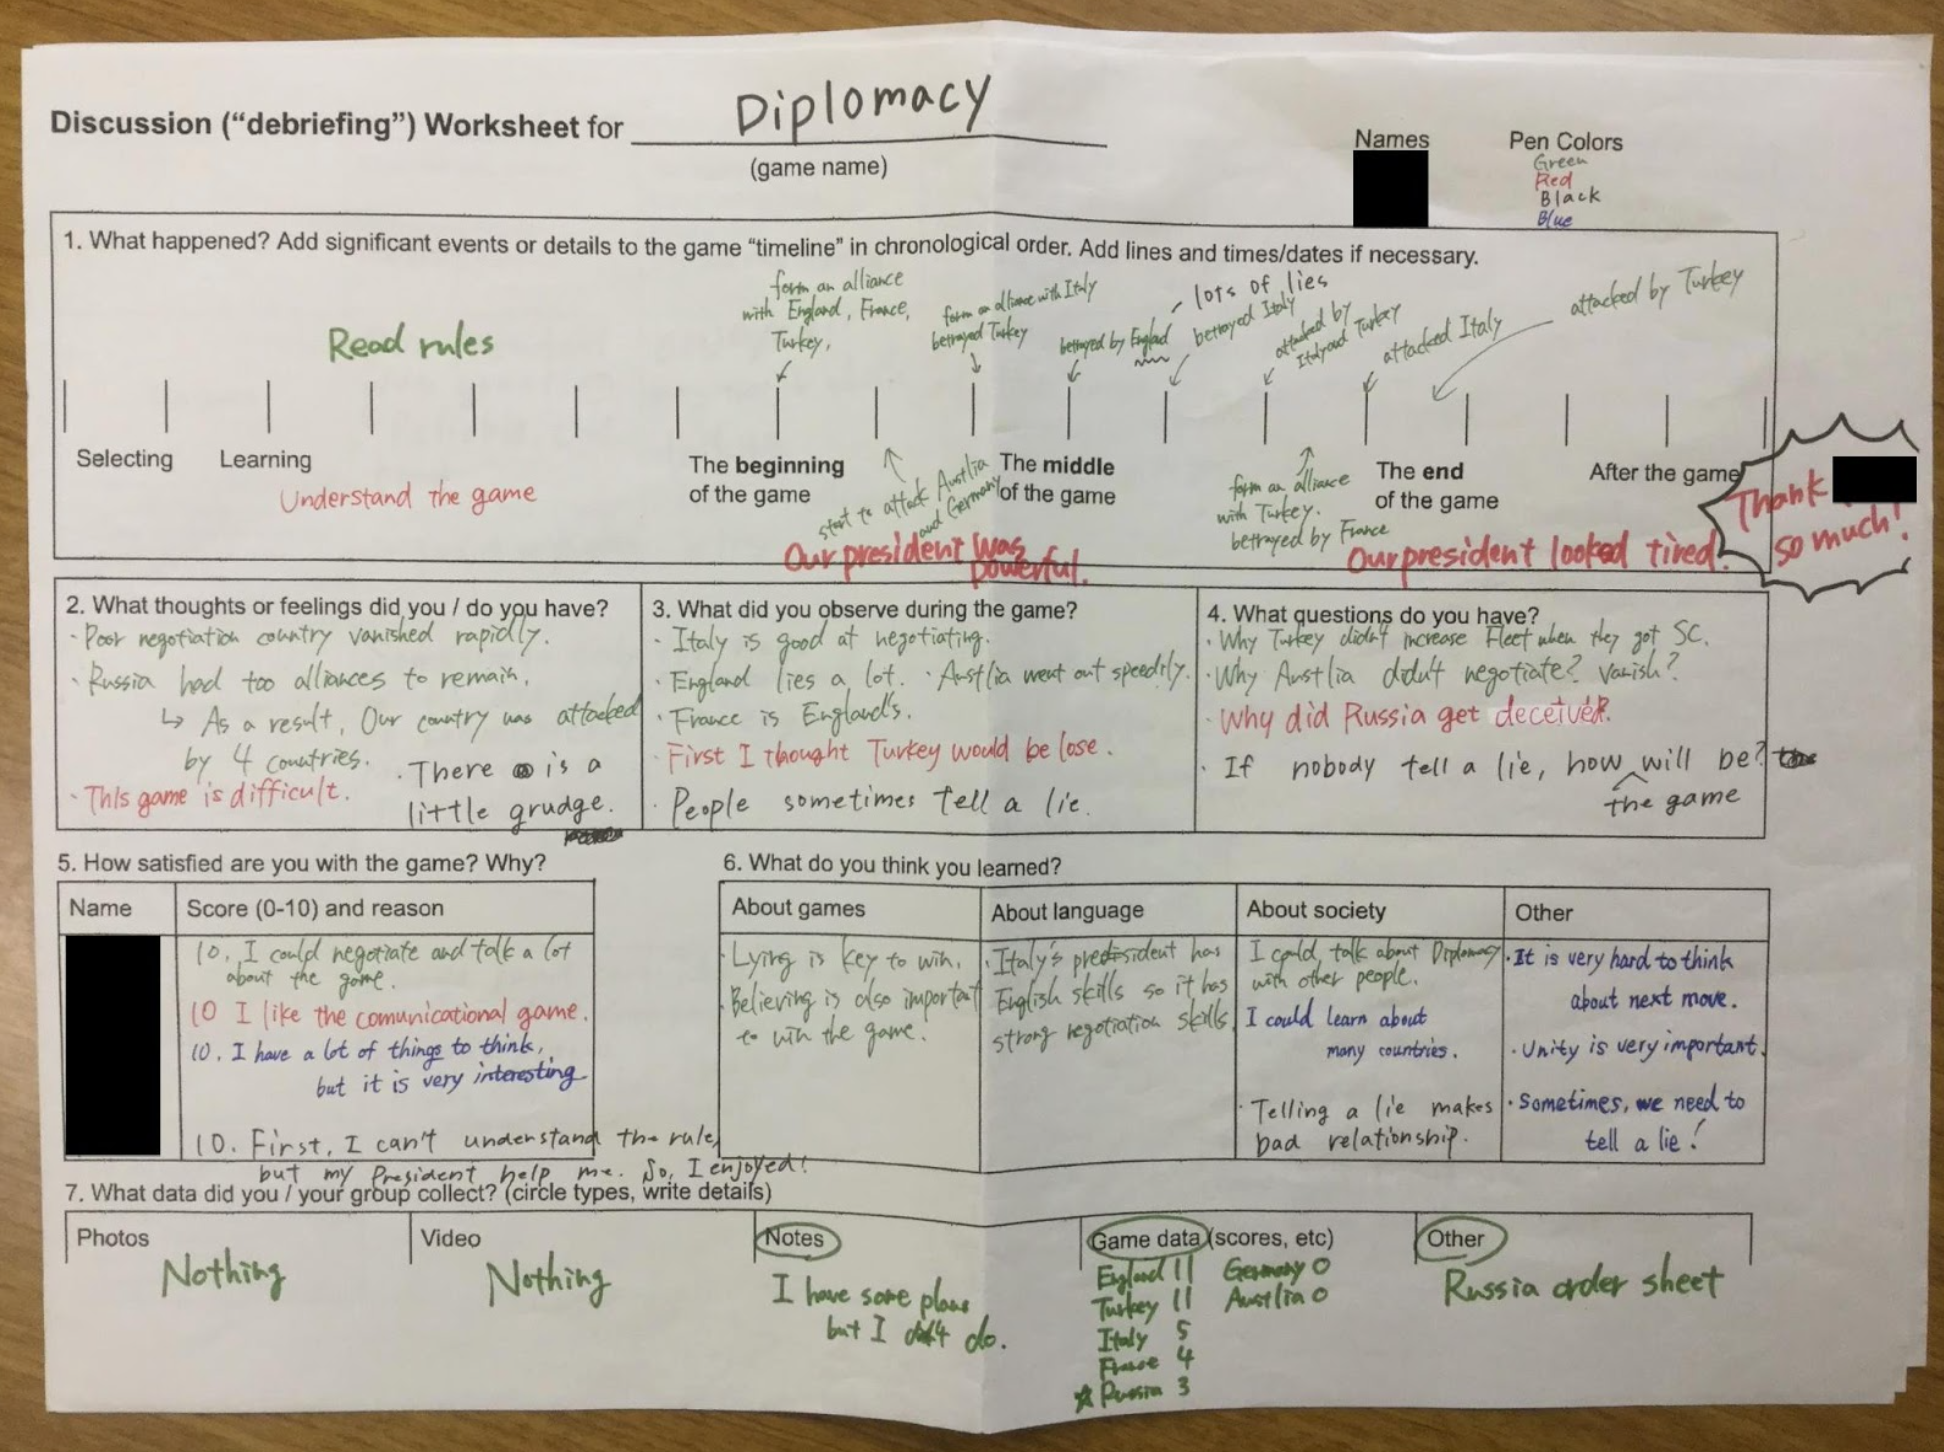 Discussion ("debriefing") Worksheet for Diplomacy
(game name)
Names
Pen Colors
Green
Red
Black
Blue
1. What happened? Add significant events or details to the game "timeline" in chronological order. Add lines and times/dates if necessary.
Read rules
form an alliance
with England, France,
Turkey,
form an alliance with Italy
betrayed Turkey
betrayed by England
lots of lies
betrayed Italy
attacked by
Italy and Turkey
attacked Italy
attacked by Turkey
Selecting
Learning
Understand the game
The beginning
of the game
start to attack Austlia
and Germany
The middle
of the game
form an alliance
with Turkey.
betrayed by France
The end
of the game
After the game
Our president was
powerful.
Our president looked tired.
Thank
so much!
2. What thoughts or feelings did you / do you have?
· Poor negotiation country vanished rapidly.
· Russia had too alliances to remain.
↳ As a result, Our country was attacked
by 4 countries.
· This game is difficult.
· There is a
little grudge.
3. What did you observe during the game?
· Italy is good at negotiating.
· England lies a lot. · Austlia went out speedily.
· France is England's.
· First I thought Turkey would be lose.
· People sometimes tell a lie.
4. What questions do you have?
· Why Turkey didn't increase Fleet when they got SC.
· Why Austlia didn't negotiate? vanish?
· Why did Russia get deceived?
· If nobody tell a lie, how will be?
the game
5. How satisfied are you with the game? Why?
Name
Score (0-10) and reason
10. I could negotiate and talk a lot
about the game.
10 I like the comunicational game.
10. I have a lot of things to think,
but it is very interesting
10. First, I can't understand the rule,
but my President help me. So, I enjoyed!
6. What do you think you learned?
About games
About language
About society
Other
· Lying is key to win.
· Believing is also important
to win the game.
· Italy's president has
English skills so it has
strong negotiation skills.
I could talk about Diplomacy
with other people.
I could learn about
many countries.
· Telling a lie makes
bad relationship.
· It is very hard to think
about next move.
· Unity is very important.
· Sometimes, we need to
tell a lie!
7. What data did you / your group collect? (circle types, write details)
Photos
Nothing
Video
Nothing
Notes
I have some plans
but I didn't do.
Game data (scores, etc)
England 11 Germany 0
Turkey 11 Austlia 0
Italy 5
France 4
☆ Russia 3
Other
Russia order sheet